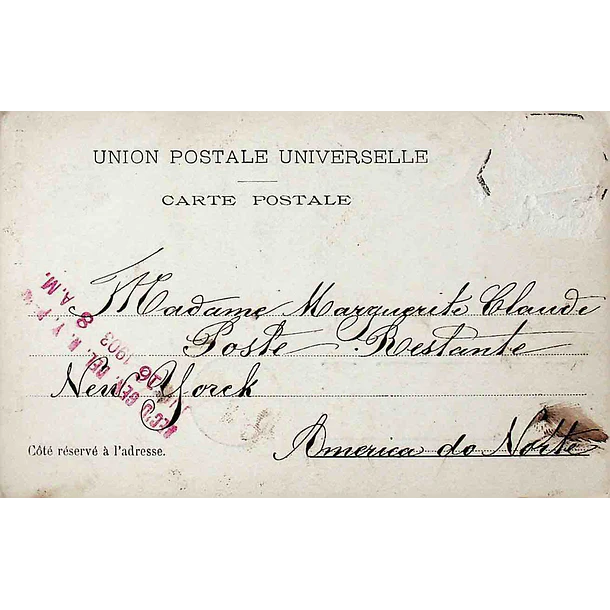 UNION POSTALE UNIVERSELLE
CARTE POSTALE
Madame Marguerite Claude
Poste Restante
New Yorck
America do Norte
Côté réservé à l'adresse.
REC'D GEN. DEL. N. Y. P.
26 1903 8 A.M.